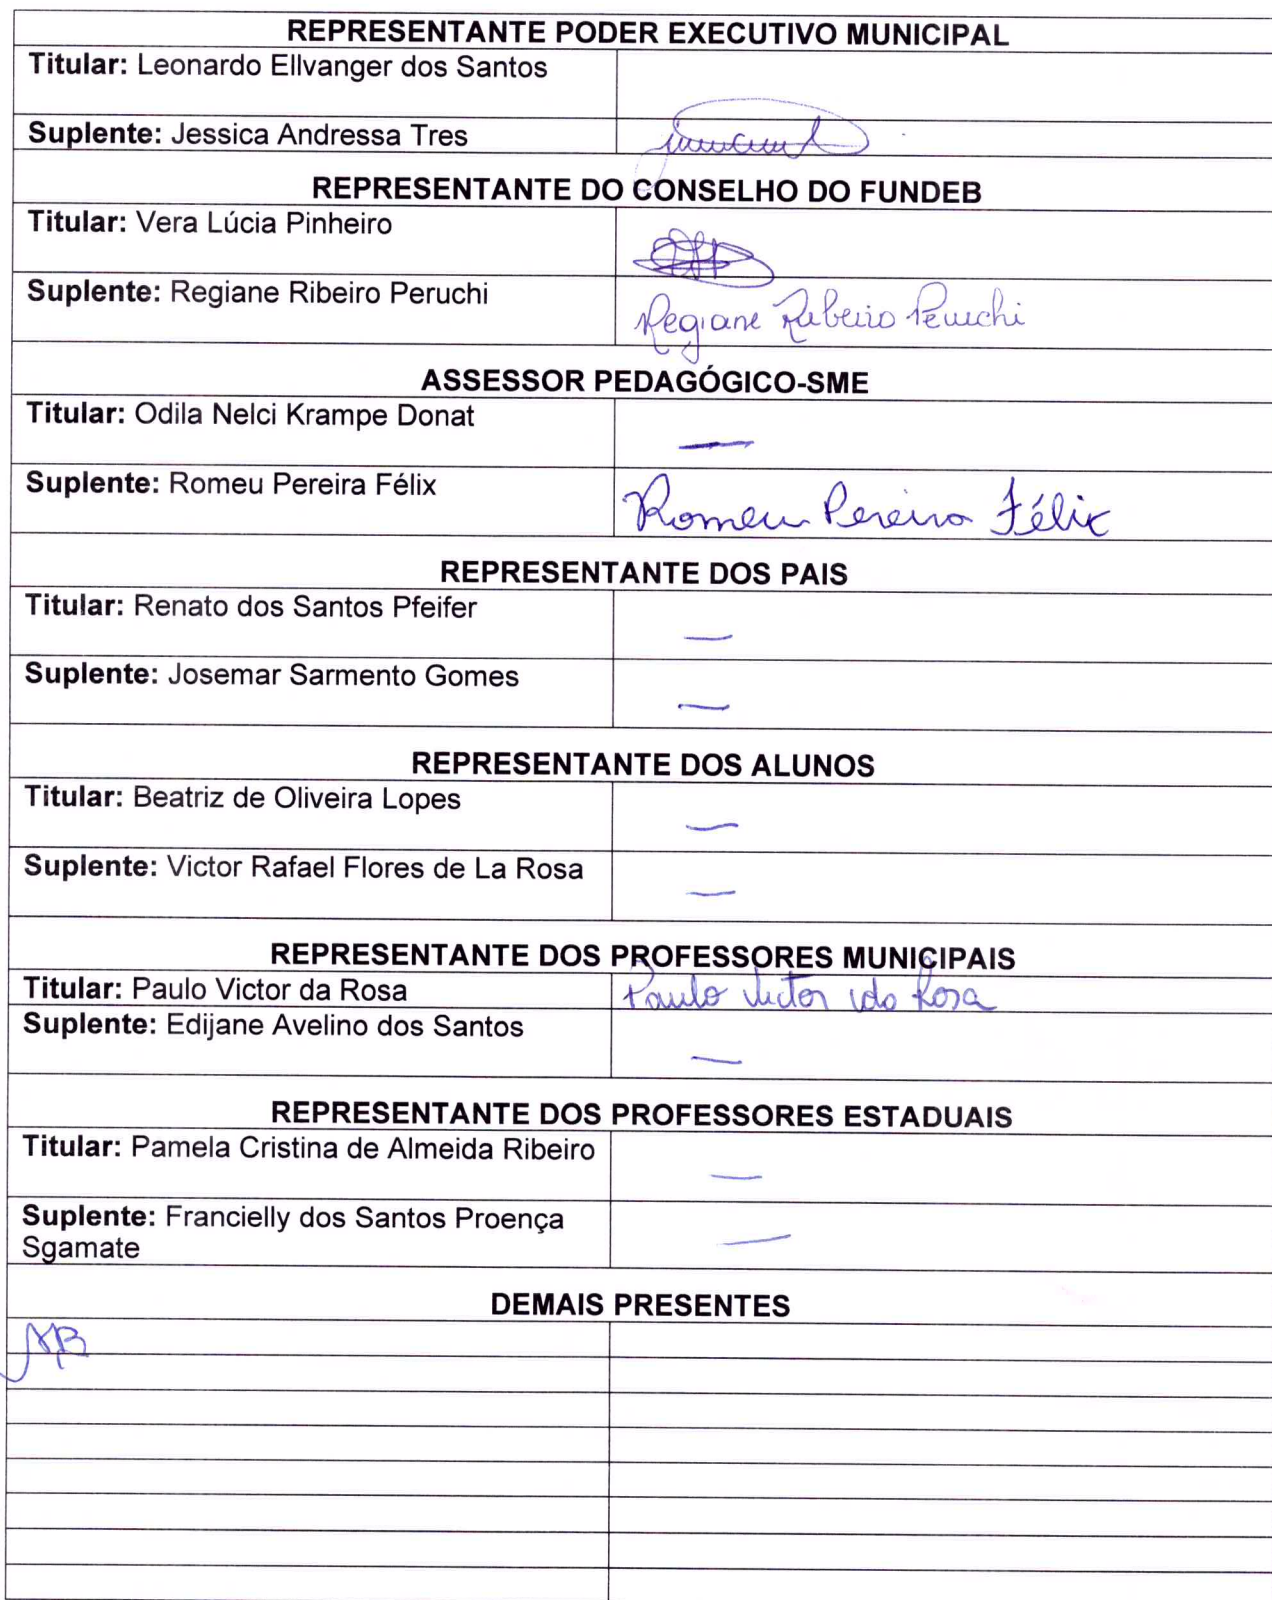 REPRESENTANTE PODER EXECUTIVO MUNICIPAL
Titular: Leonardo Ellvanger dos Santos
Suplente: Jessica Andressa Tres
REPRESENTANTE DO CONSELHO DO FUNDEB
Titular: Vera Lúcia Pinheiro
Suplente: Regiane Ribeiro Peruchi
Regiane Ribeiro Peruchi
ASSESSOR PEDAGÓGICO-SME
Titular: Odila Nelci Krampe Donat
—
Suplente: Romeu Pereira Félix
Romeu Pereira Félix
REPRESENTANTE DOS PAIS
Titular: Renato dos Santos Pfeifer
—
Suplente: Josemar Sarmento Gomes
—
REPRESENTANTE DOS ALUNOS
Titular: Beatriz de Oliveira Lopes
—
Suplente: Victor Rafael Flores de La Rosa
—
REPRESENTANTE DOS PROFESSORES MUNICIPAIS
Titular: Paulo Victor da Rosa
Paulo Victor da Rosa
Suplente: Edijane Avelino dos Santos
—
REPRESENTANTE DOS PROFESSORES ESTADUAIS
Titular: Pamela Cristina de Almeida Ribeiro
—
Suplente: Francielly dos Santos Proença
Sgamate
—
DEMAIS PRESENTES